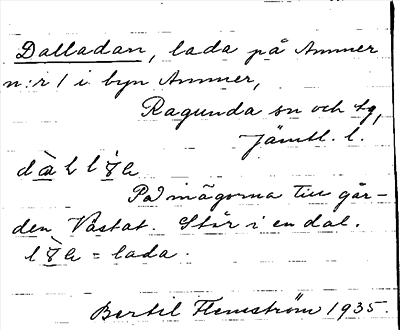 Dalladan, lada på Ammer
n:r 1 i byn Ammer,
Ragunda sn och tg,
Jämtl. l.
På ägorna till går-
den Västat. Står i en dal.
= lada.
Bertil Flemström 1935.